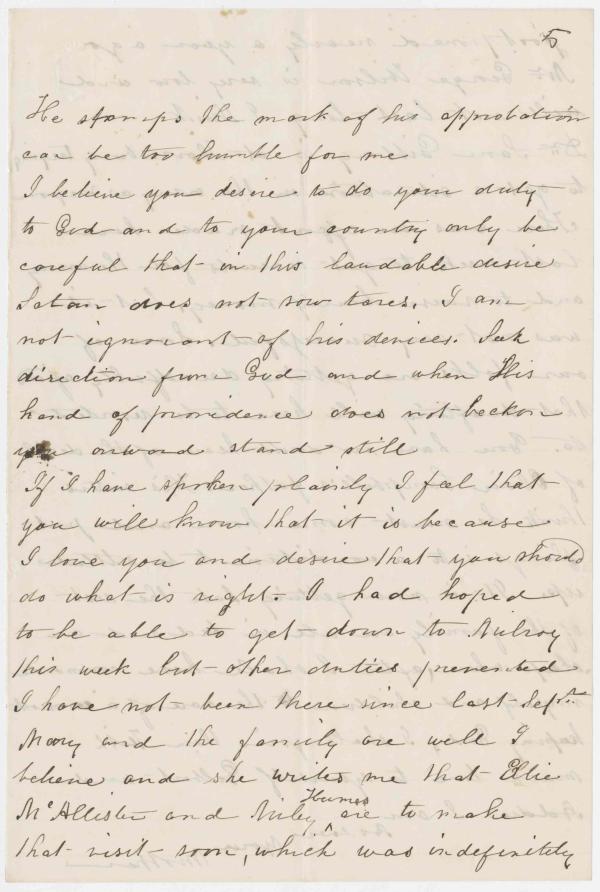 5
He stamps the mark of his approbation
can be too humble for me
I believe you desire to do your duty
to God and to your country only be
careful that in this laudable desire
Satan does not sow tares. I am
not ignorant of his devices. Seek
direction from God and when His
hand of providence does not beckon
you onward stand still
If I have spoken plainly I feel that
you will know that it is because
I love you and desire that you should
do what is right. I had hoped
to be able to get down to Milroy
this week but other duties prevented
I have not been there since last Sept.
Mary and the family are well I
believe and she writes me that Ellie
McAllister and Niley Humes are to make
that visit soon, which was indefinitely